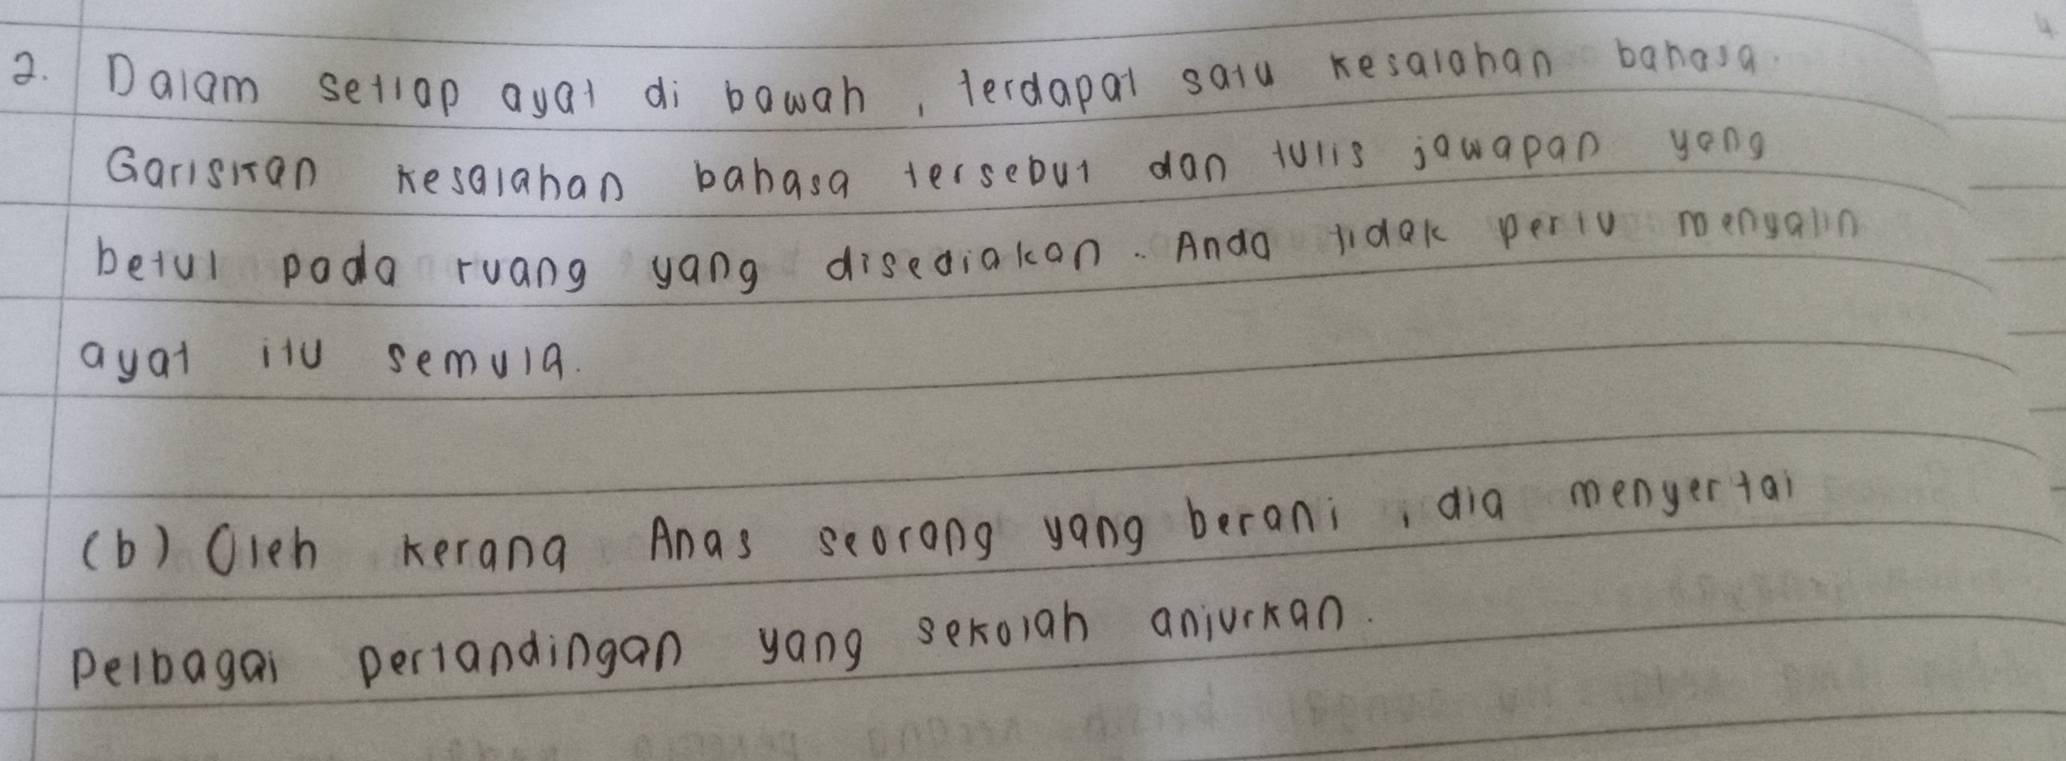 2. Dalam setiap ayat di bawah, terdapat satu kesalahan bahasa.
Gariskan kesalahan bahasa tersebut dan tulis jawapan yang
betul pada ruang yang disediakan. Anda tidak perlu menyalin
ayat itu semula.
(b) Oleh kerana Anas seorang yang berani, dia menyertai
pelbagai pertandingan yang sekolah anjurkan.